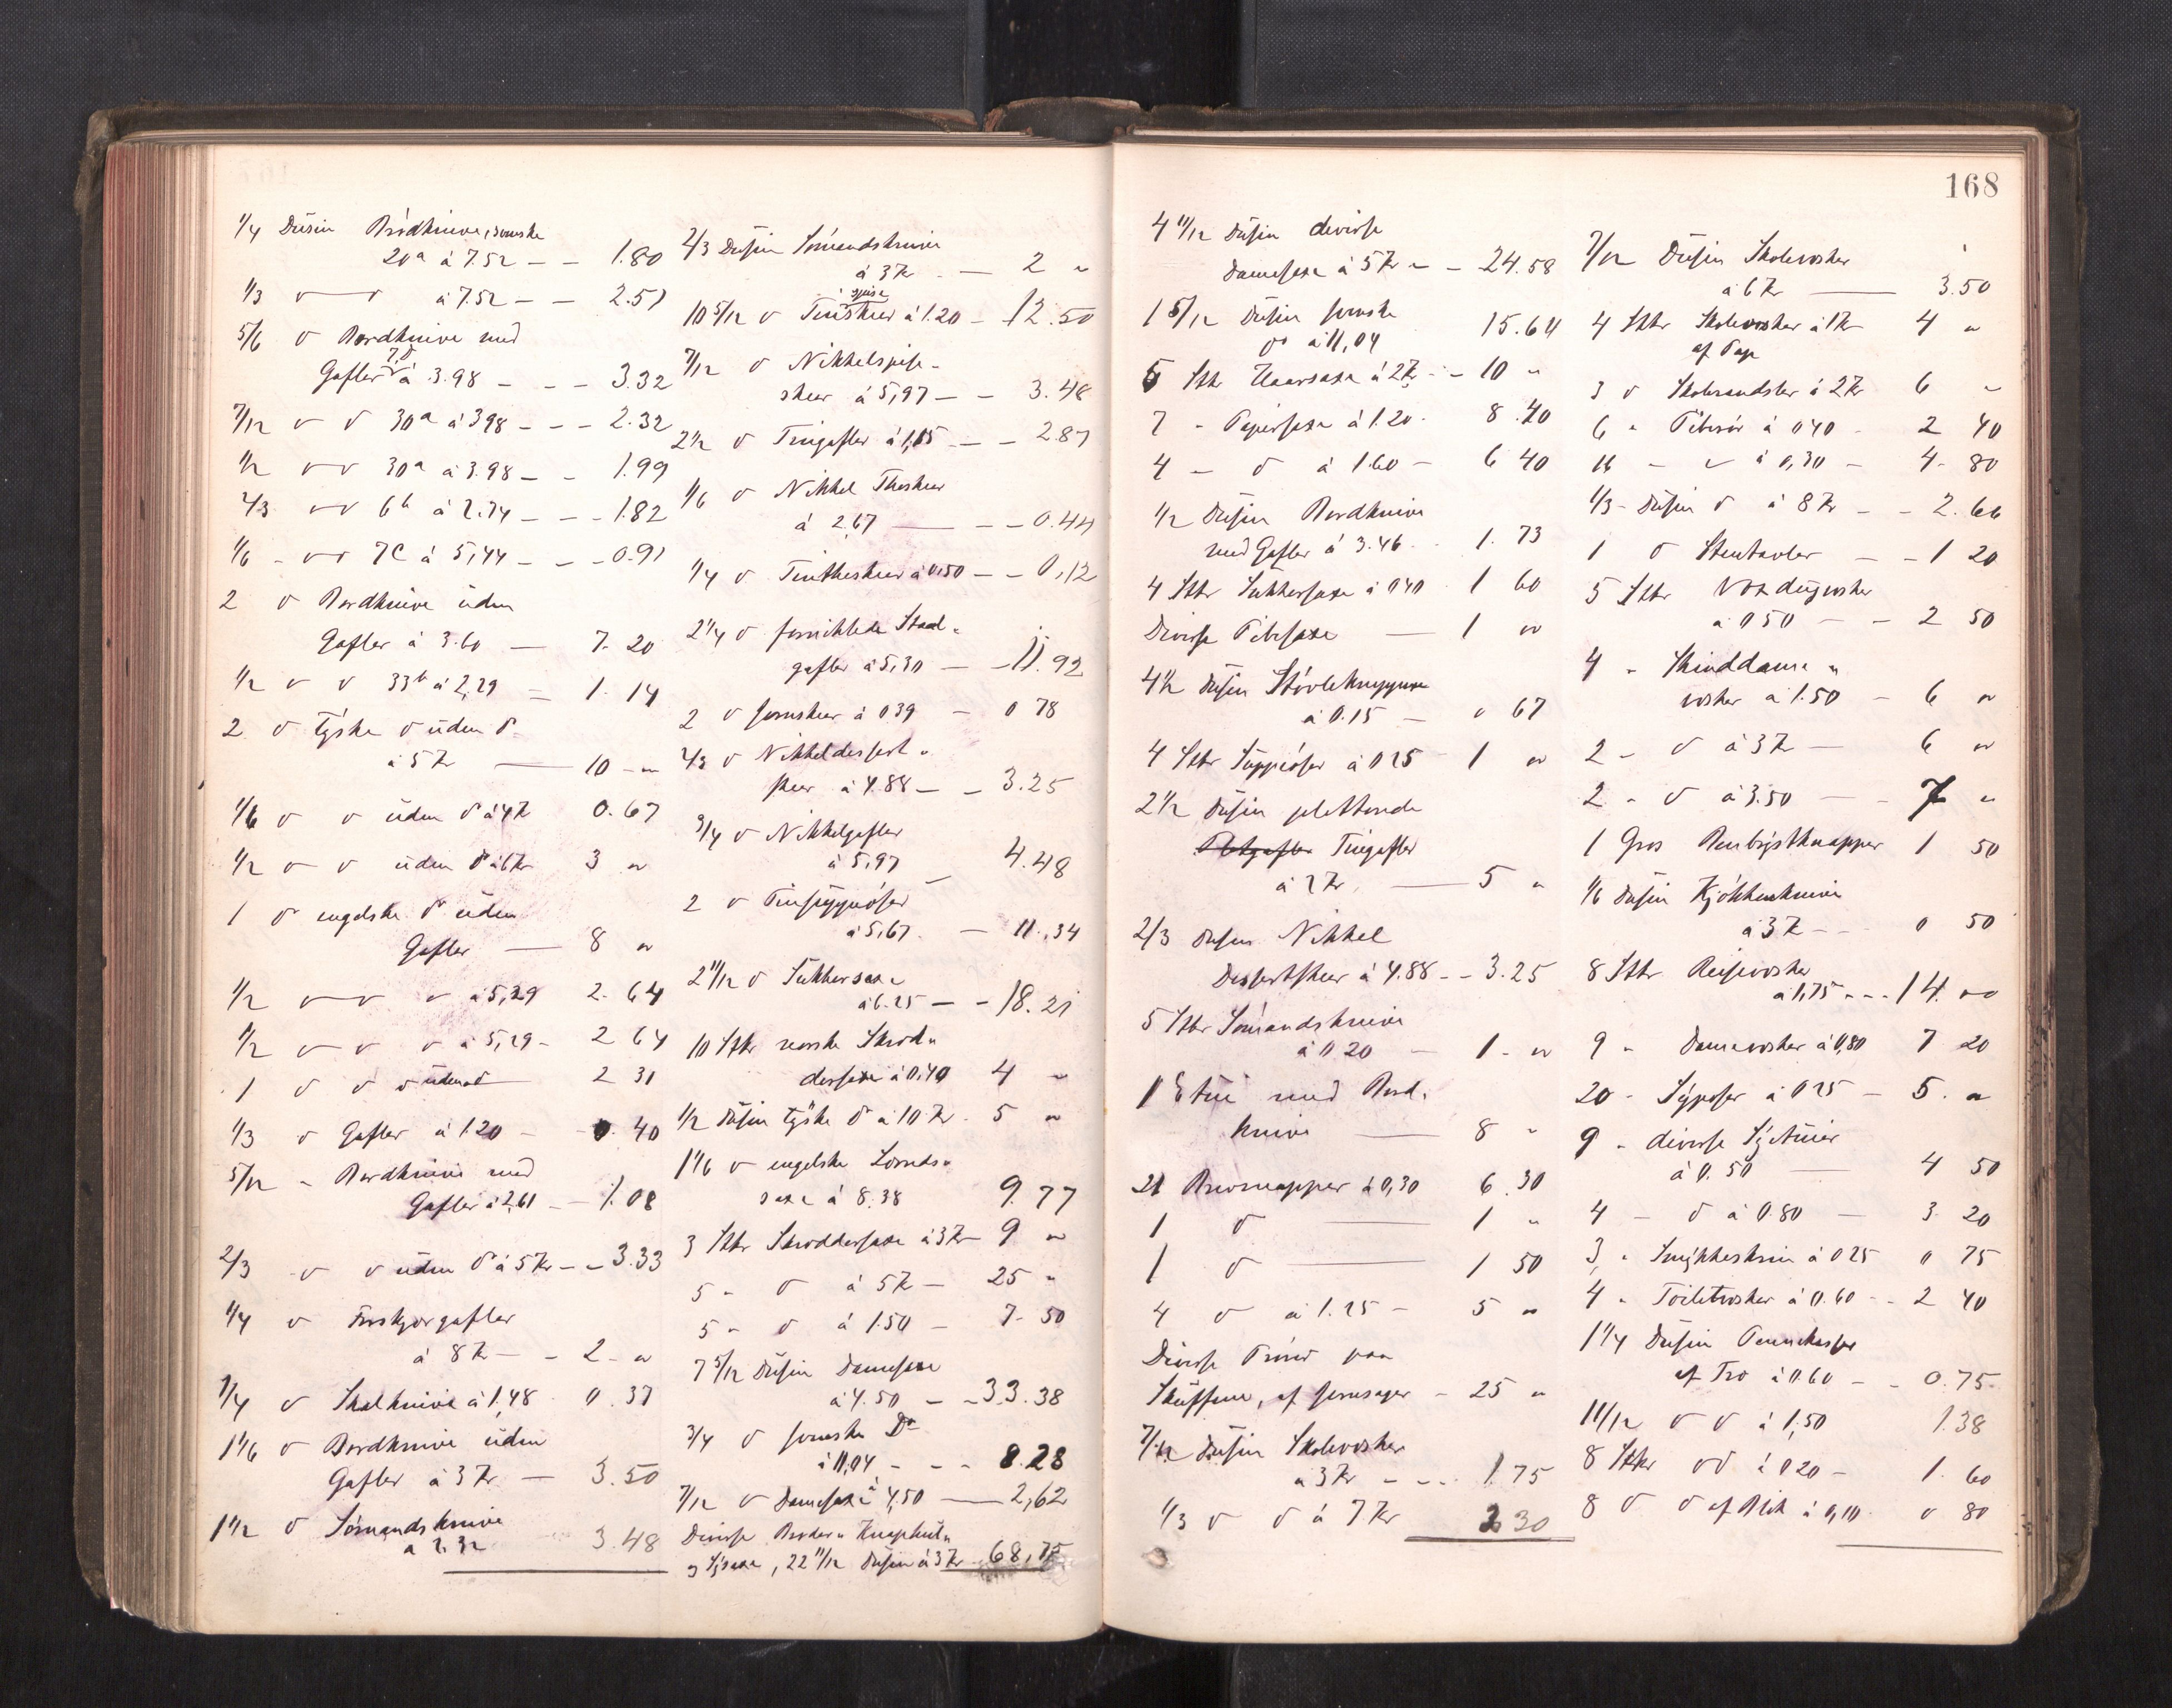 1/4 Dusin Brödknive, svenske
20a à 7.52 — — 1.80
1/3 do à 7.52 — — 2.51
5/6 do Bordknive med
Gafler 7,d à 3.98 — — — 3.32
7/12 do do 30a à 398 — — — 2.32
1/2 do do 30a à 3.98 — — 1.99
2/3 do do 6b à 2.74 — — — 1.82
1/6 - do do 7C à 5,44 — — — 0.91
2 do Bordknive uden
Gafler à 3.60 — 7. 20
1/2 do do 33b à 2,29 — 1. 14
2 do tyske do uden do
à 5 Kr — 10 - "
1/6 do do uden do à 4 Kr 0. 67
1/2 do do uden do à 6 Kr 3 "
1 do engelske do uden
Gafler — 8 "
1/2 do do do à 5,29 2. 64
1/2 do do do à 5,29 - 2 64
1 do do do uden do — 2 31
1/3 do Gafler à 1.20 — 0. 40
5/12 " Bordknive med
Gafler à 2,61 — — 1. 08
2/3 do do uden do à 5 Kr — — 3.33
1/4 do Forskjærgafler
à 8 Kr — — 2 - "
1/4 do Skalknive à 1,48 0. 37
1 1/6 do Bordknive uden
Gafler à 3 Kr — 3. 50
1 1/2 do Sömandsknive
à 2.32 3. 48
2/3 Dusin Sömandsknive
à 3 Kr — 2 "
spise
10 5/12 do Tinskeer à 1.20 — 12. 50
7/12 do Nikkelspise-
skeer à 5,97 — — 3. 48
2 1/2 do Tingafler à 1,15 — — 2.87
1/6 do Nikkel Theskeer
à 2,67 — — — 0.44
1/4 do Tintheskeer à 0,50 — — 0,12
2 1/4 do fornikklede Staal-
gafler à 5,30 — — 11. 92
2 do Jernskeer à 0 39 — 0 78
2/3 do Nikkeldessert-
skeer à 4.88 — — 3. 25
3/4 do Nikkelgafler
à 5,97 — 4. 48
2 do Tinsuppeöser
à 5,67 — 11. 34
2 11/12 do Sukkersaxe
à 6.25 — — 18. 21
10 Stkr norske Skræd-
dersaxe à 0,40 4 "
1/2 Dusin tyske do à 10 Kr - 5 "
1 1/6 do engelske Lomds-
saxe à 8.38 9. 77
3 Stkr Skræddersaxe à 3 Kr 9 "
5 - do à 5 Kr — 25 "
5 - do à 1.50 — 7. 50
7 5/12 Dusin Damesaxe
à 4.50 — — 33. 38
3/4 do svenske Do
à 11,04 - - - 8. 28
7/12 do Damesaxe à 4,50 — 2,62
Diverse Broder- Knaphul-
og Sysaxe, 22 11/12 Dusin à 3 Kr 68,75
168
4 11/12 Dusin diverse
Damesaxe à 5 Kr — — 24. 58
1 5/12 Dusin svenske
do à 11,04 15. 64
5 Stkr Haarsaxe à 2 Kr — 10 "
7 - Papirsaxe à 1.20 - 8. 40
4 — do à 1.60 — 6 40
1/2 Dusin Bordknive
med Gafler à 3.46 - 1. 73
4 Stkr Sukkersaxe à 0 40 1 60
Diverse Pibesaxe — 1 "
4 1/2 Dusin Stövleknappere
à 0.15 — 0 67
4 Stkr Suppeöser à 0 25 1 "
2 1/2 Dusin pletterede
Tingafler
à 2 Kr. — 5 "
2/3 Dusin Nikkel
Dessertskeer à 4.88 — — 3. 25
5 Stkr Sömandsknive
à 0 20 — 1 - "
1 Etui med Bord-
knive — 8 "
21 Brevknapper à 0,30 6. 30
1 do — 1 "
1 do — 1 50
4 do à 1.25 — 5 "
Diverse Pröver paa
Skuffene, af Jernsager — 25 "
7/12 Dusin Skolevæsker
à 3 Kr - - - 1. 75
1/3 do do à 7 Kr 2 30
7/12 Dusin Skolevæsker
à 6 Kr — 3. 50
4 Stkr Skolevæsker à 1 Kr 4 "
af Pap
3 do Skoleransler à 2 Kr 6 "
6 " Piberör à 0 40 - 2 40
16 — do à 0,30 — 4. 80
1/3 - Dusin do à 8 Kr — — 2. 66
1 do Stentavler — — 1 20
5 Stkr Voxdugvæsker
à 0 50 — — 2 50
4 - Skinddame-
væsker à 1.50 — 6 "
2 - do à 3 Kr — 6 "
2 - do à 3.50 — — 7 "
1 Gros Benbrystknapper 1 50
1/6 Dusin Kjökkenknive
à 3 Kr - - - 0 50
8 Stkr Reisevæsker
à 1,75 - - - 14. "
9 - Damevæsker à 0,80 7 20
20 - Syposer à 0 25 — 5. "
9 - diverse Syetuier
à 0. 50 — 4 50
4 — do à 0.80 — 3. 20
3 - Smykkeskrin à 0 25 0 75
4 - Toiletvæsker à 0.60 - - 2 40
1 1/4 Dusin Pennekasser
af Træ à 0.60 — — 0. 75
11/12 do do à 1,50 1.38
8 Stkr do do à 0 20 — 1. 60
8 do do af Blik à 0,10 - 0 80